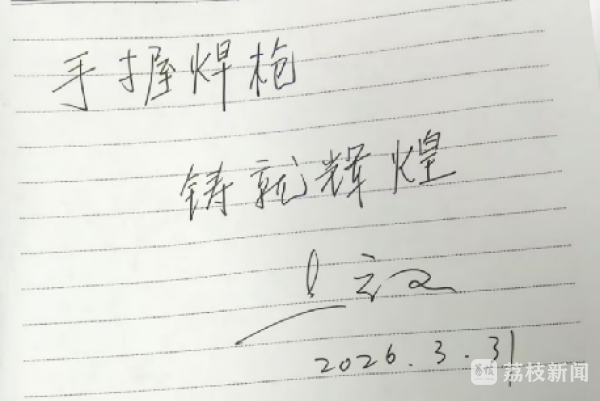 手握焊枪
铸就辉煌
2026.3.31
荔枝新闻